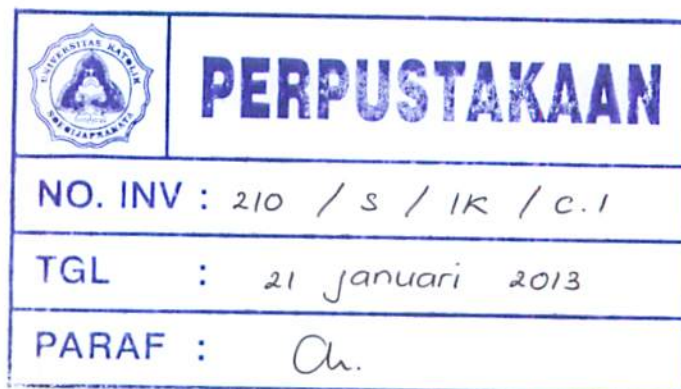 UNIVERSITAS KATOLIK
SOEGIJAPRANATA
PERPUSTAKAAN
NO. INV : 210 / S / IK / C.1
TGL : 21 januari 2013
PARAF : Ch.